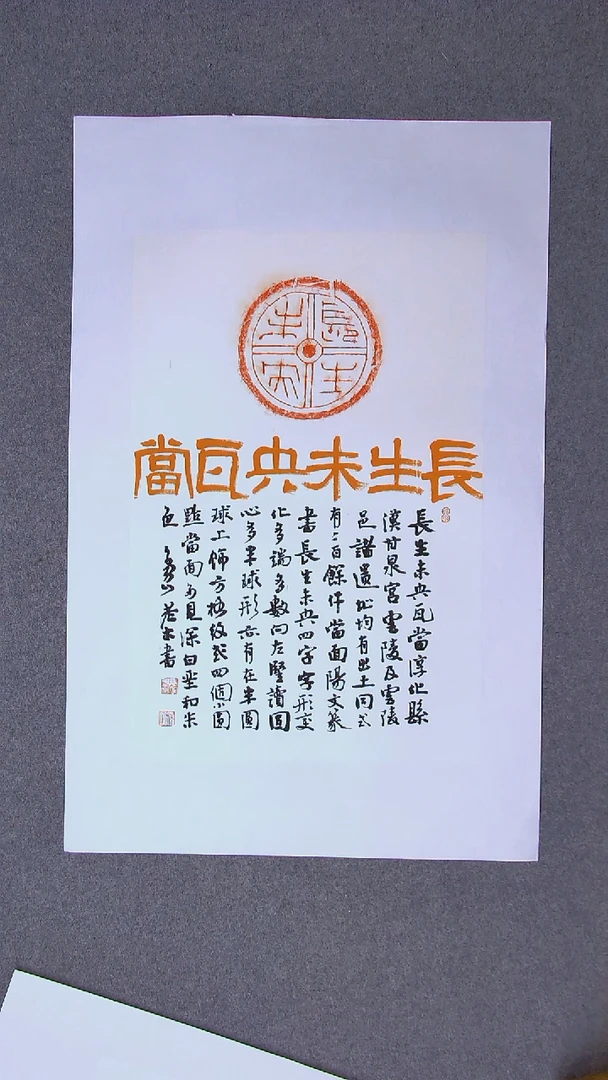 長生
未央
長生未央瓦當
長生未央瓦當淳化縣
漢甘泉宮雲陵及雲陵
邑諸遺址均有出土同式
有二百餘件當面陽文篆
書長生未央四字字形變
化多端多數向左豎讀圓
心多呈球形亦有在半圓
球上飾方格紋或四個小圓
點當面可見深白堊和朱
色 書